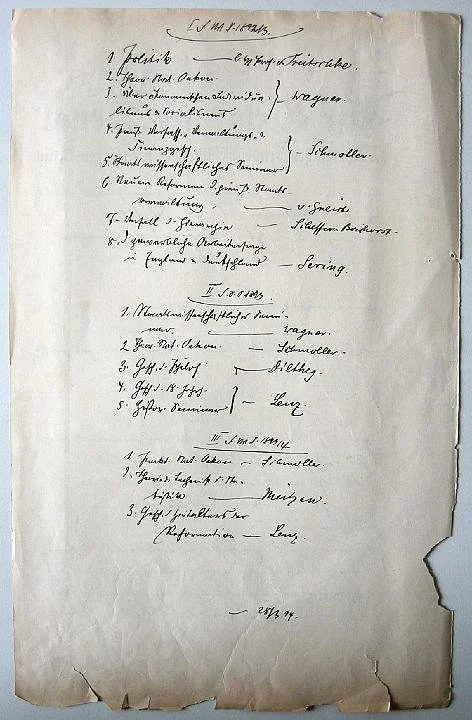 I S W S. 1892/3.
1. Politik — v. Treitschke.
2. Theor. Nat. Oekon.
3. Über ökonomischen Individua- } Wagner.
lismus & Sozialismus
4. Preuß. Verfass. Verwaltungs- &
Finanzgesch. } — Schmoller
5. Staatswissenschaftliches Seminar
6. Neuere Reformen d. preuß. Staats-
verwaltung — v. Gneist
7. d. — Scheffer-Boichorst.
8. d. gewerbliche Arbeiterfrage
in England & Deutschland — Sering.
II S. S. 1893.
1. Staatswissenschaftliches Semi-
nar. — Wagner.
2. Theor. Nat. Oekon. — Schmoller.
3. Gesch. d. Philos. — Dilthey.
4. Gesch. d. 18. Jhrh.
5. Histor. Seminar } — Lenz
III S. W S. 1893/4
1. Prakt. Nat. Oekon. — Schmoller.
2. Theorie &
tistik — Meitzen
3. Gesch. d. Zeitalters der
Reformation — Lenz.
— 28/3 94.